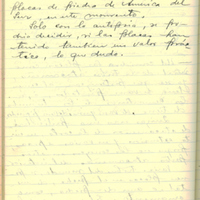 placas de piedra de America del
Sur, en este momento.
Solo con la autopsia, se po-
dría decidir, si las placas han
tenido tambien un valor prác-
tico, lo que dudo.